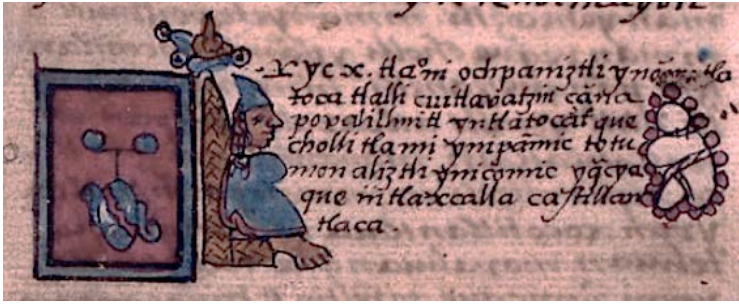 Yc x. tlaoni ochpaniztli yn tla
tocatlalli cuitlavatzin çāna
povalilhuitl yntlātocāt que
cholli tlami ynipāmic totu
monaliztli ynicomic yq̄c ya
que īn tlaxcalla castillan
tlaca.